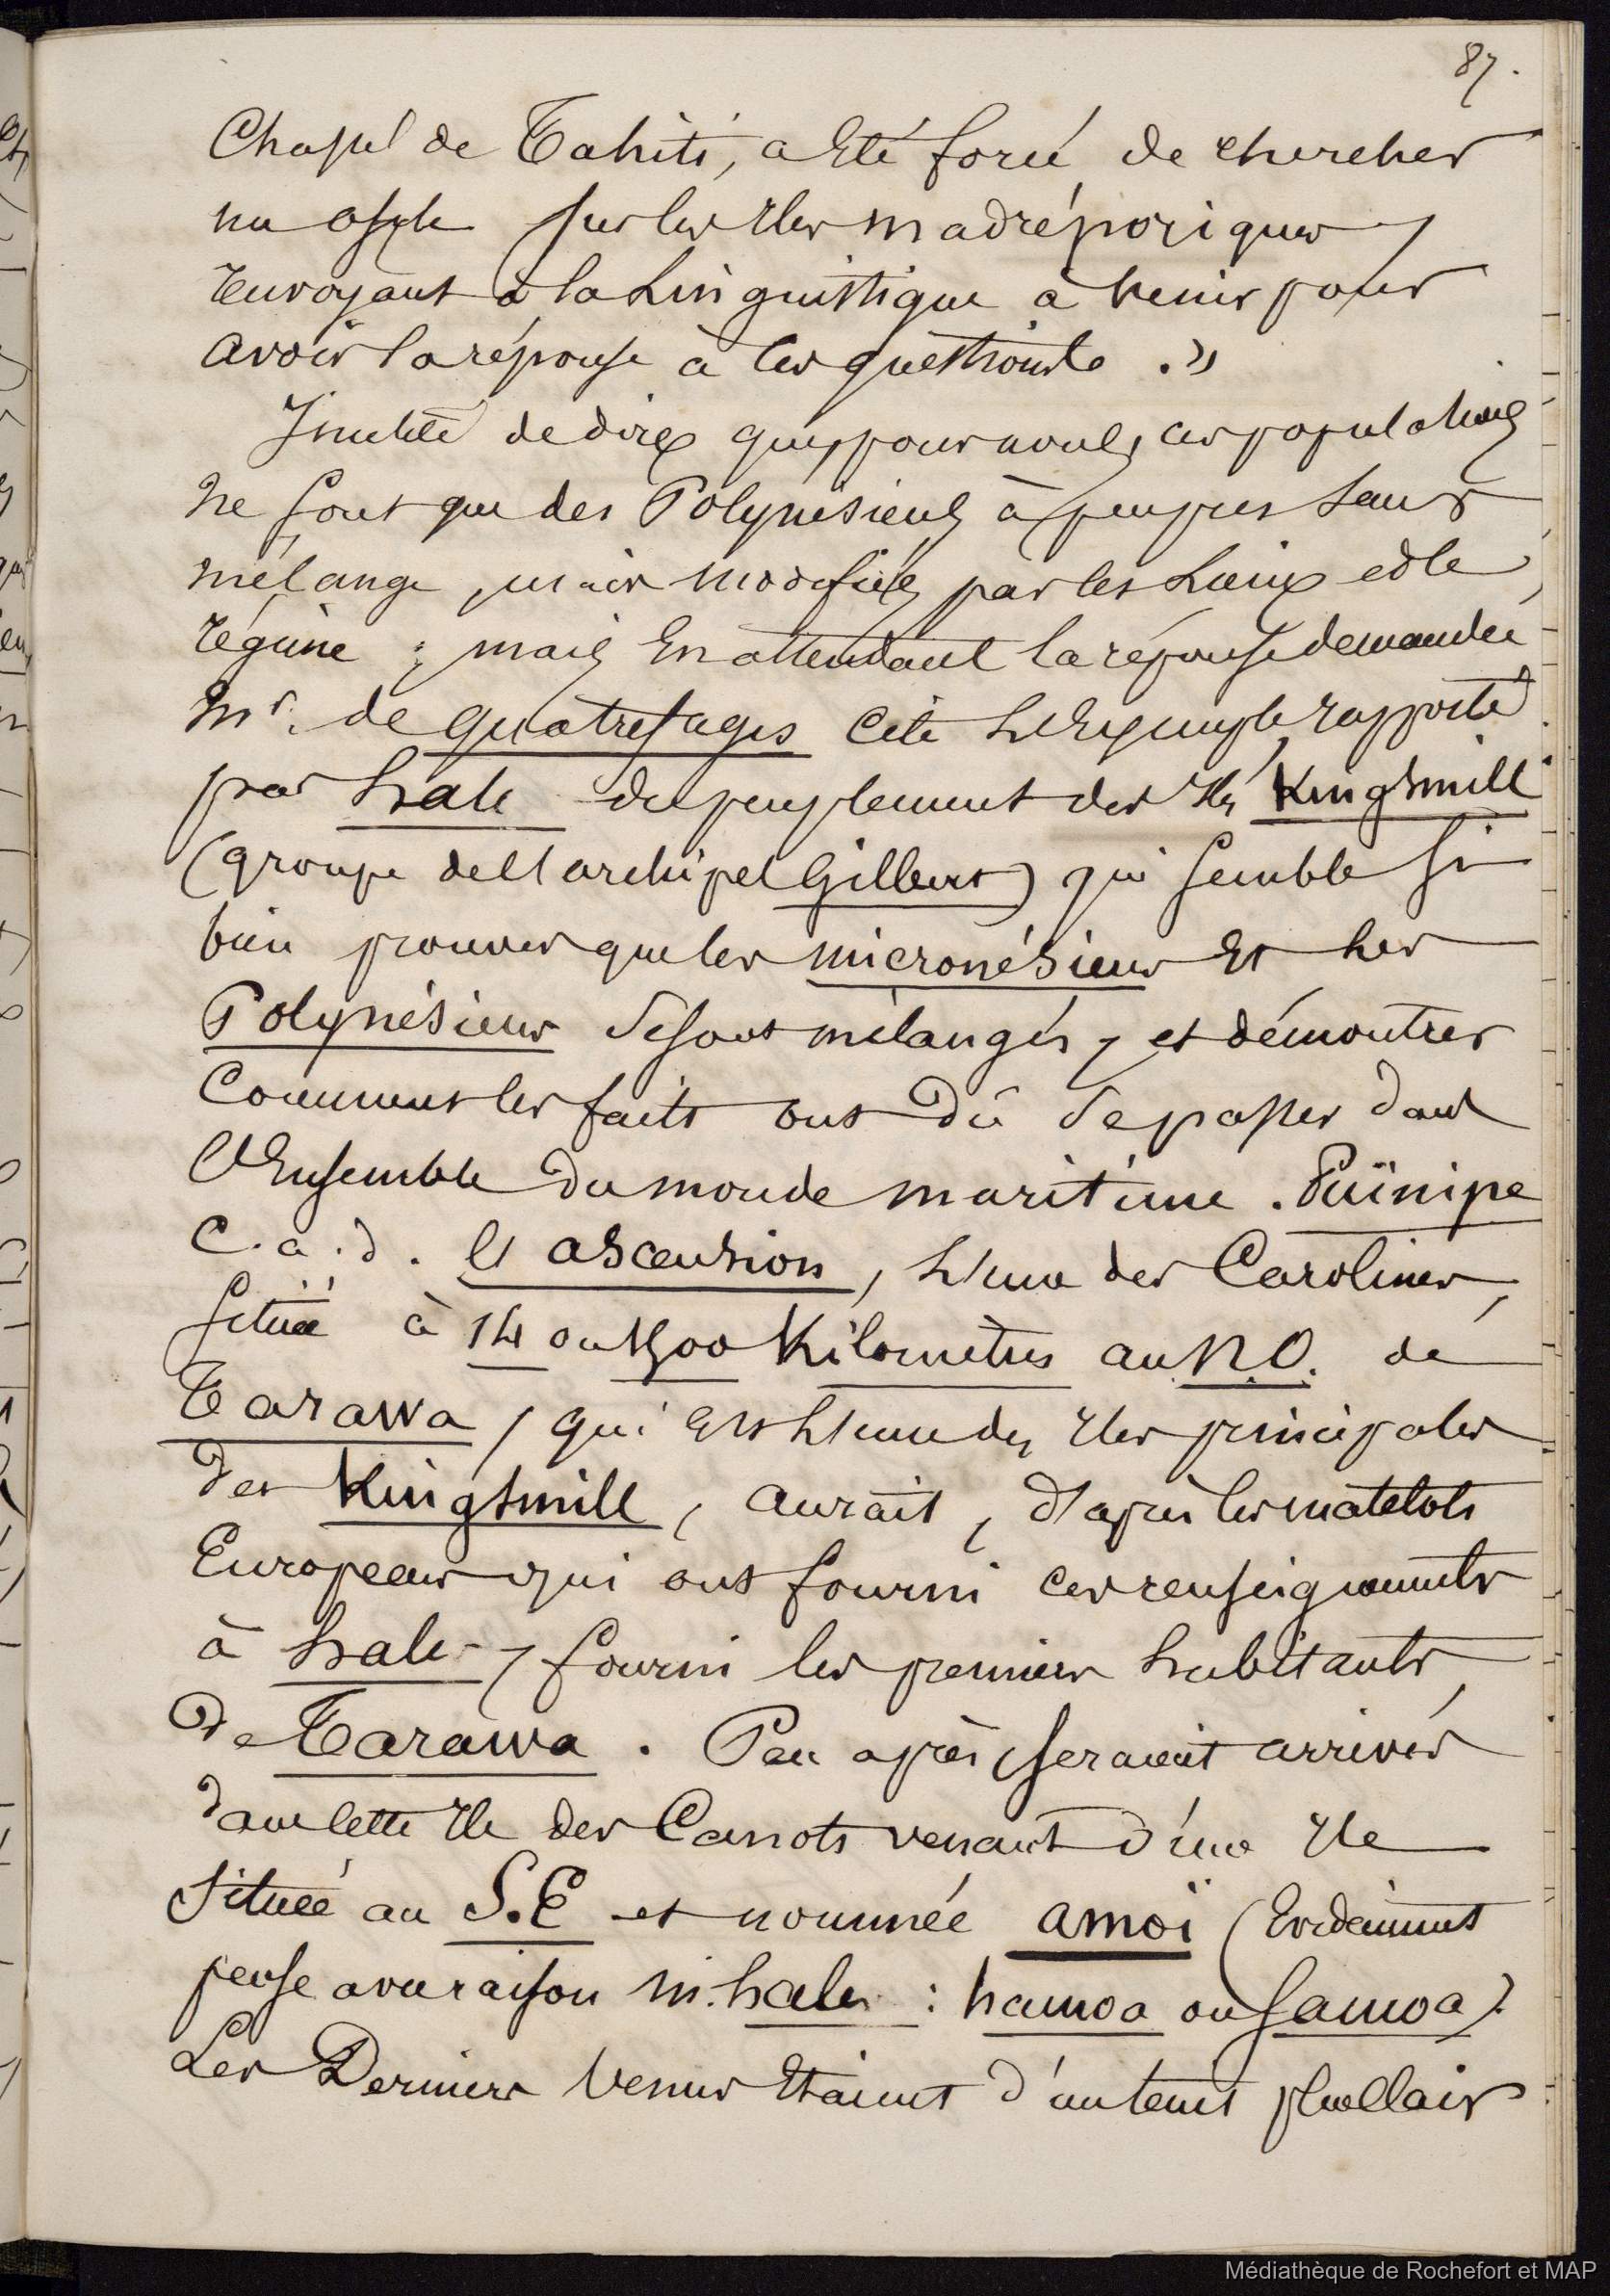 87.
Chassé de Tahiti, a été forcé de chercher
un asyle sur les Iles madréporiques,
renvoyant à la Linguistique à venir pour
avoir la réponse à ces questions là. »
Inutile de dire que, pour nous, ces populations
ne sont que des Polynésiens à peu près sans
mélange, mais modifiés par les Lieux et le
régime ; mais En attendant la réponse demandée
Mr. de quatrefages cite L'Exemple, rapporté
par hale du peuplement des Iles Kingsmill
(groupe de l'archipel Gilbert) qui semble si
bien prouver que les micronésiens Et les
Polynésiens se sont mélangés, et démontrer
Comment les faits ont Dû se passer dans
l'Ensemble du monde maritime. Puïnipe
C. a. d. l'ascension, L'une des Carolines,
située à 14 ou 1500 Kilomètres au N.O. de
Tarawa, qui Est L'une des Iles principales
des Kingsmill, aurait, d'après les matelots
Européens qui ont fourni ces renseignements
à hale, fourni les premiers habitants
De Tarawa. Peu après seraient arrivés
dans cette Ile des Canots venant d'une Ile
située au S.E et nommée amoï (Evidemment
pense avec raison M. hale : hamoa ou Samoa).
Les Derniers Venus Etaient d'un teint plus clair
Médiathèque de Rochefort et MAP